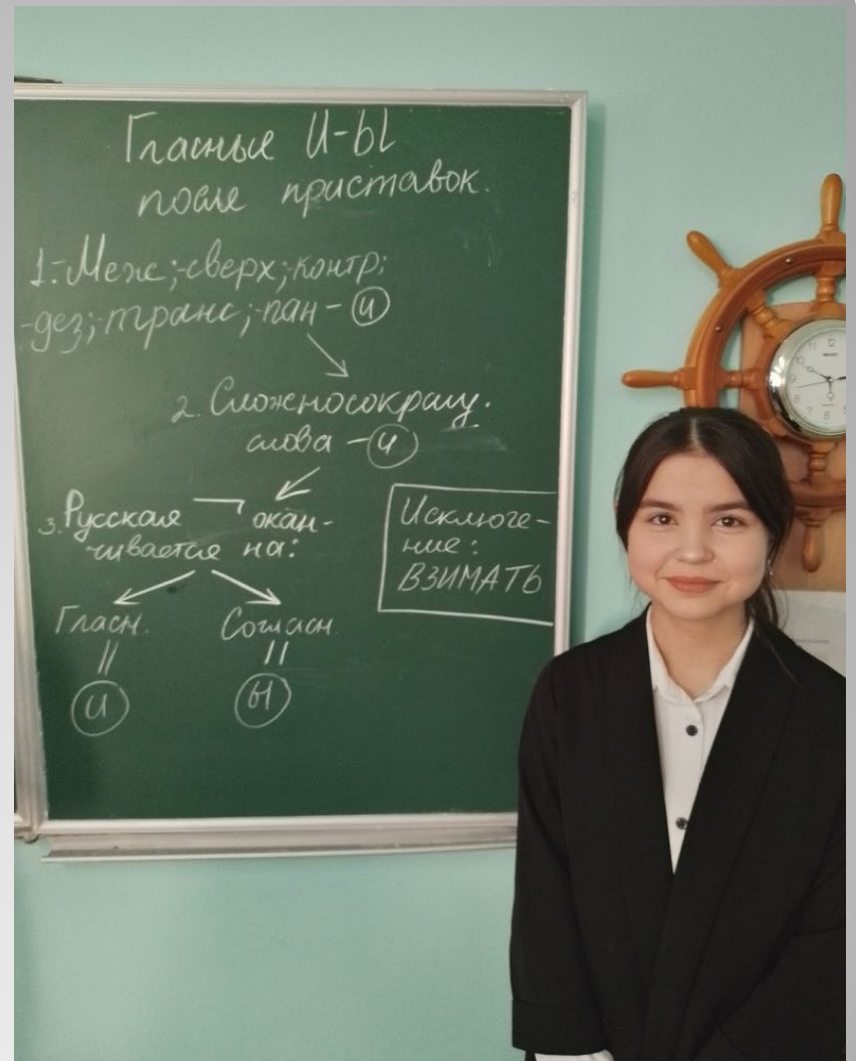 Гласные И-Ы
после приставок.
1.-Меж;-сверх;-контр;
-дез;-транс;-пан-И
2. Сложносокращ.
слова - И
3. Русская ¬ окан-
чивается на:
Гласн. Согласн.
|| ||
И Ы
Исключе-
ние:
ВЗИМАТЬ